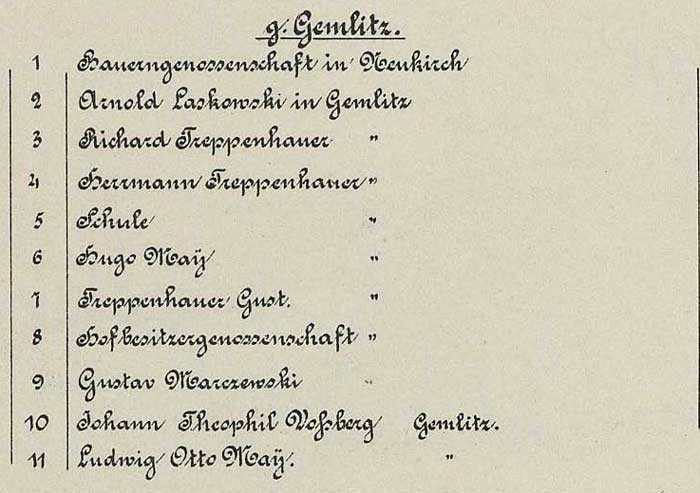 g. Gemlitz.
1 Bauerngenossenschaft in Neukirch
2 Arnold Laskowski in Gemlitz
3 Richard Treppenhauer "
4 Herrmann Treppenhauer "
5 Schule "
6 Hugo Maÿ "
7 Treppenhauer Gust. "
8 Hofbesitzergenossenschaft "
9 Gustav Marczewski "
10 Johann Theophil Voßberg Gemlitz.
11 Ludwig Otto Maÿ. "